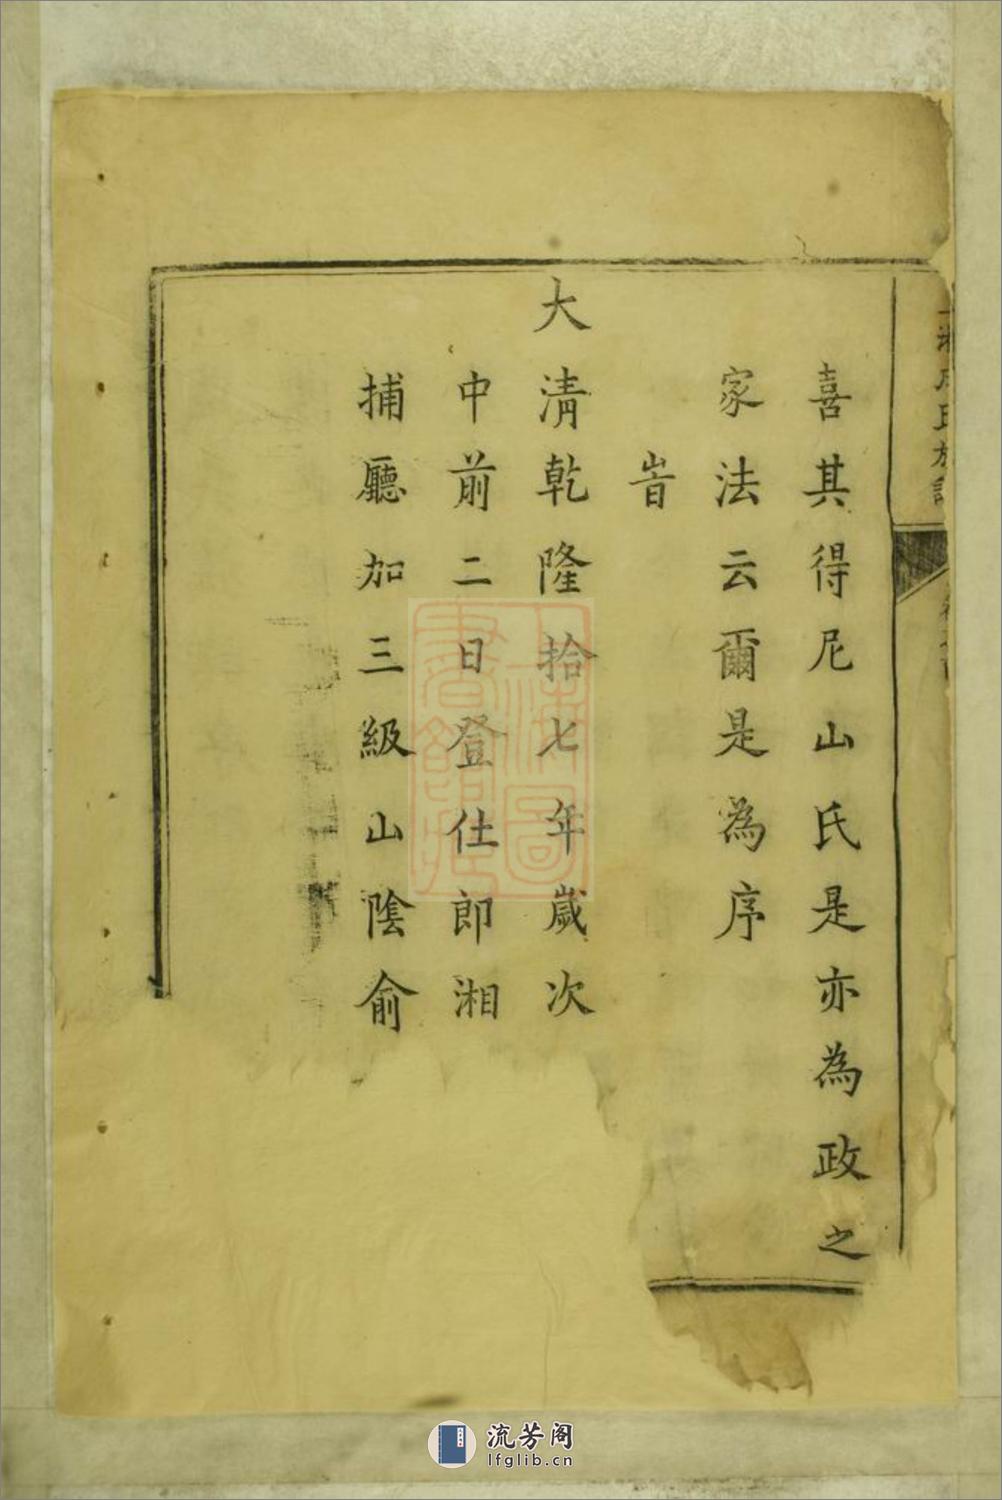 喜其得尼山氏是亦為政之
家法云爾是為序
旹
大清乾隆拾七年歲次
中前二日登仕郎湘
捕廳加三級山陰俞
上海圖書館藏
流芳阁
lfglib.cn